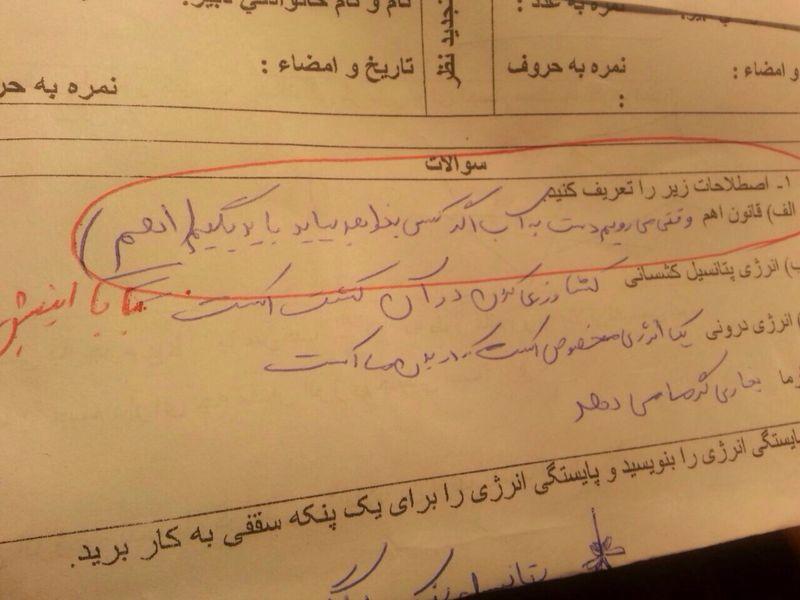 نام و نام خانوادگي دبیر:
نمره به عدد :
تجدید نظر
و امضاء :
نمره به حروف :
تاریخ و امضاء :
نمره به حر
سوالات
۱- اصطلاحات زیر را تعریف کنیم
الف) قانون اهم وقتی می رویم دست به آب اگر کسی بخواهد بیاید باید بگیم (اهم)
ب) انرژی پتانسیل کشسانی کشاورزی کردن در آن کشت است
) انرژی درونی یک انرژی مخصوص است که در بدن ما است
رما بخاری گرما می دهد
پایستگی انرژی را بنویسید و پایستگی انرژی را برای یک پنکه سقفی به کار برید.